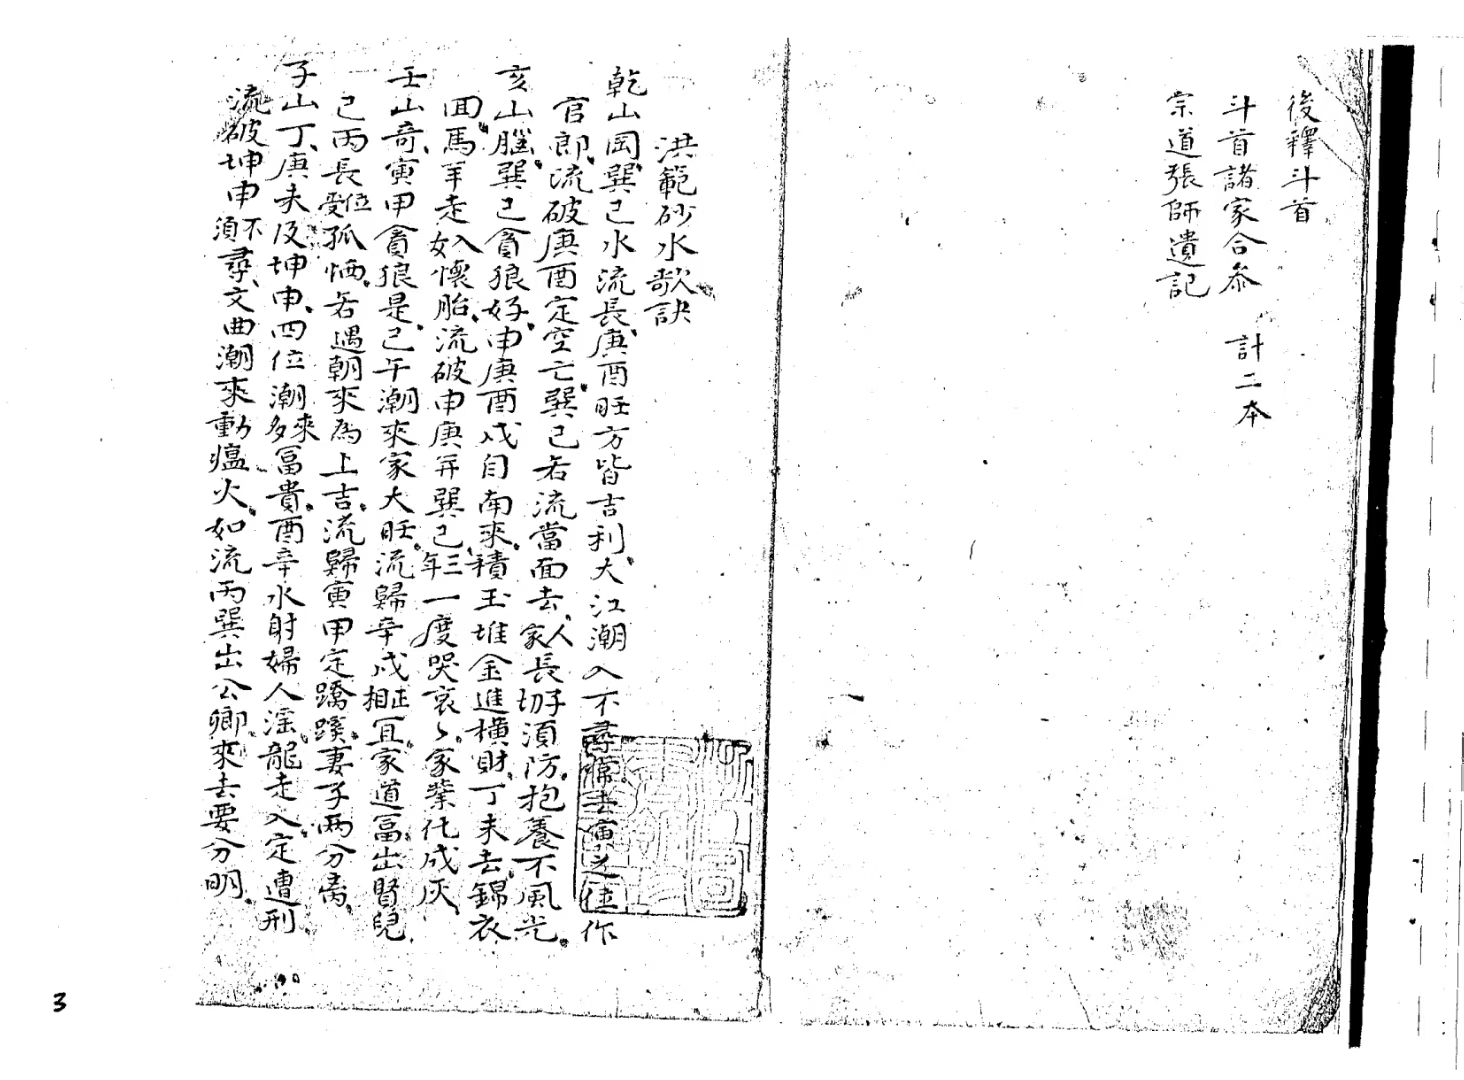 後釋斗首
斗首諸家合参　計二本
宗道張師遺記
洪範砂水歌訣
乾山岡巽己水流長庚酉旺方皆吉利大江潮入不尋常去寅之位作
官郎流破庚酉定空亡巽己若流當面去家人長切子須防抱養不風光
亥山腦巽己貪狼好申庚酉戌自南來積玉堆金進橫財丁未去錦衣
囬馬羊走入如懷胎流破申庚并巽己三年一度哭哀〻家業化成灰
壬山奇寅甲貪狼是己午潮來家大旺流歸辛戌正相宜家道冨出賢兒
己丙長位受孤恓若遇朝來為上吉流歸寅甲定蹺蹊妻子兩分离
子山丁庚未及坤申四位潮來多冨貴酉辛水射婦人淫龍走入定遭刑
流破坤申不須尋文曲潮來動瘟火如流丙巽出公卿來去要分明
3